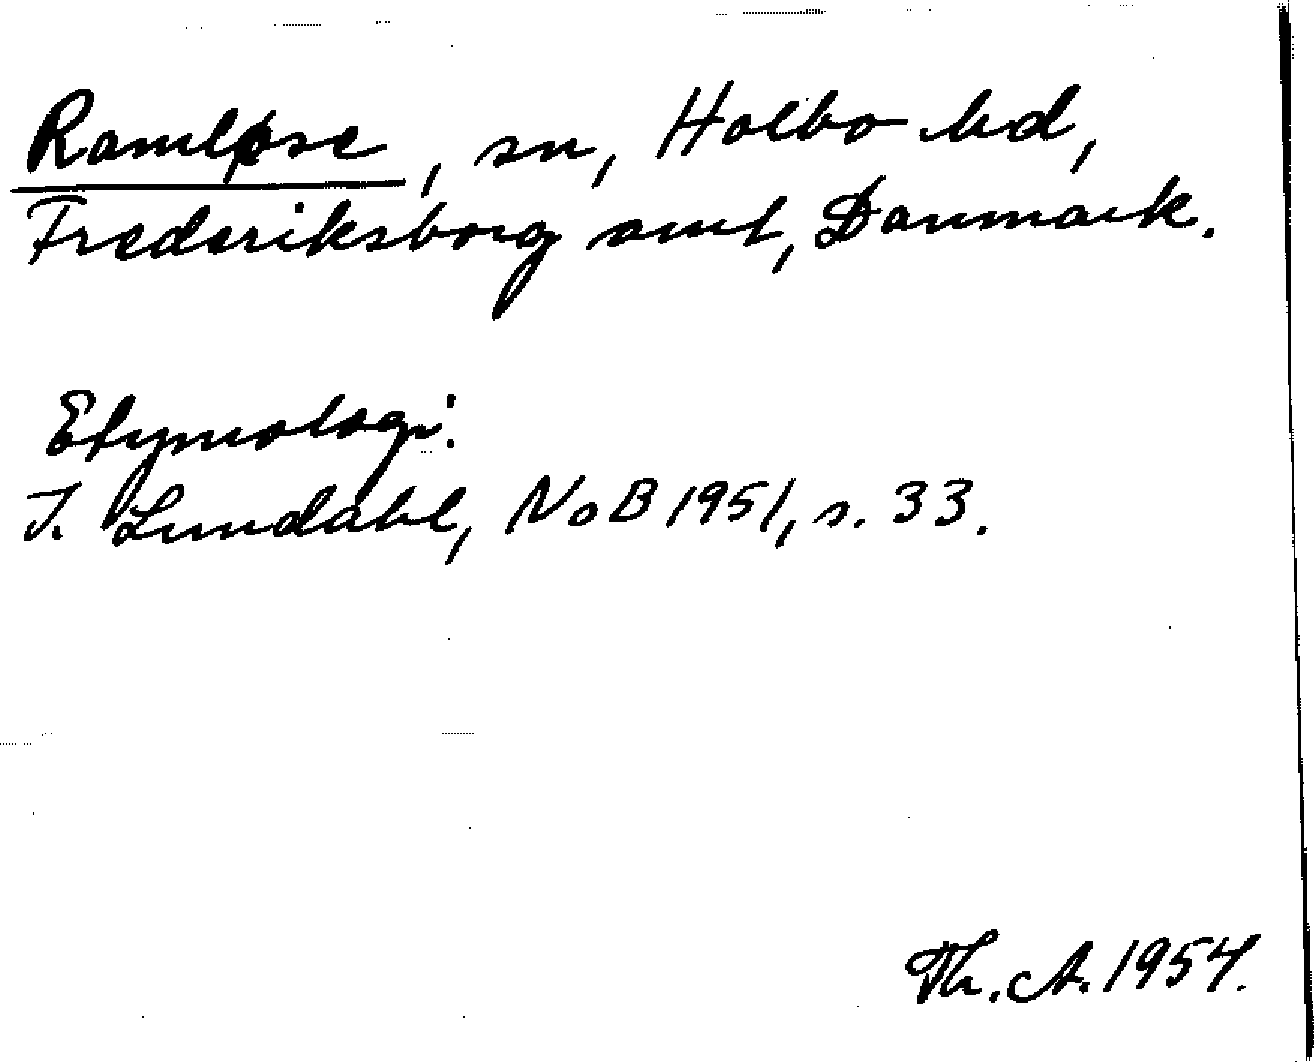 Ramløse, sn, Holbo hd,
Frederiksborg amt, Danmark.
Etymologi:
I. Lundahl, NoB 1951, s. 33.
Th. A. 1954.